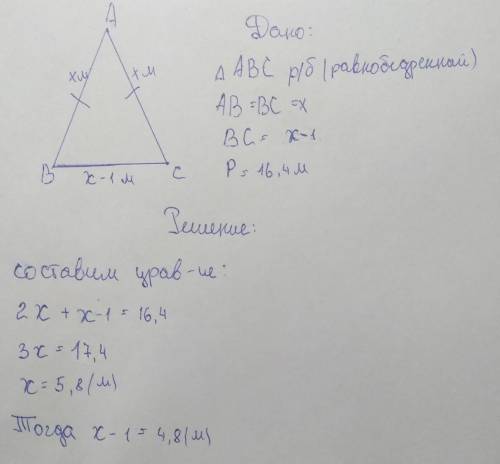 A
хм
хм
B
C
х-1м
Дано:
△ ABC р/б (равнобедренный)
AB = BC = х
BC = х-1
P = 16,4 м
Решение:
составим урав-ие:
2х + х-1 = 16,4
3х = 17,4
х = 5,8 (м)
Тогда х-1 = 4,8 (м)